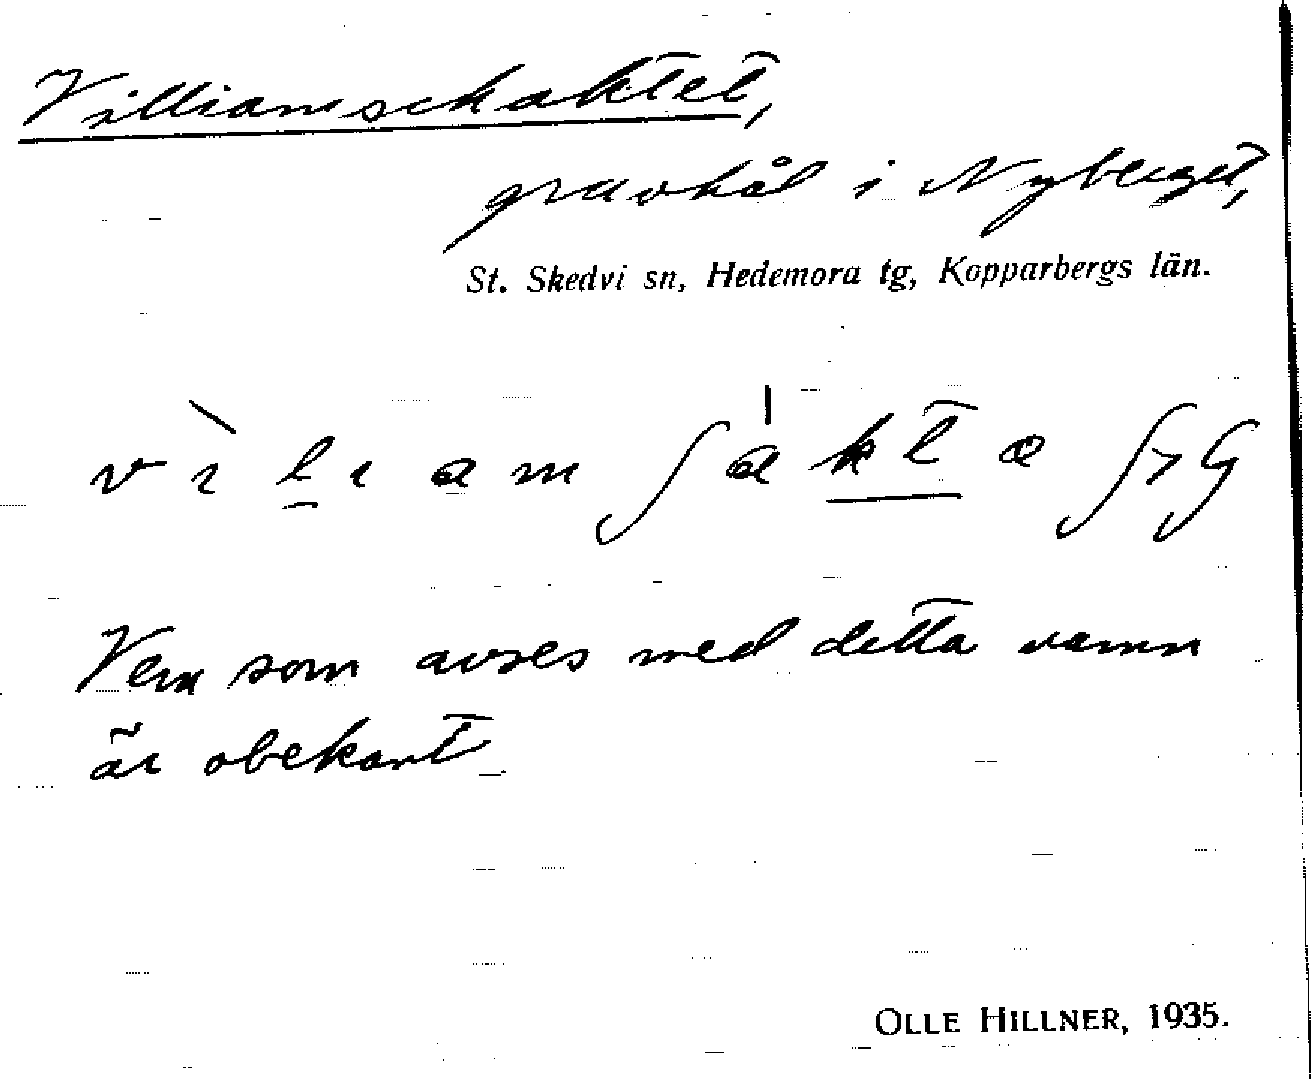 Villiamschaktet,
gruvhål i Nyberget,
St. Skedvi sn, Hedemora tg, Kopparbergs län.
Vem som avses med detta namn
är obekant
OLLE HILLNER, 1935.